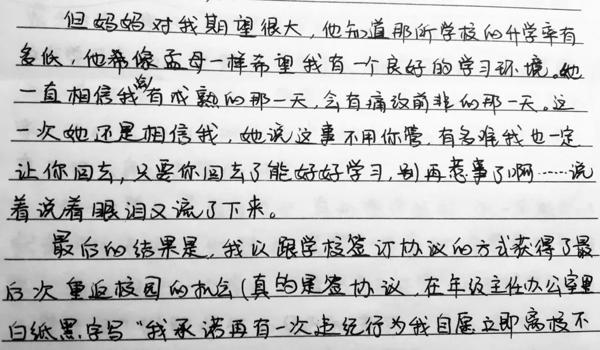 但妈妈对我期望很大，他知道那所学校的升学率有
多低，他希像孟母一样希望我有一个良好的学习环境。她
一直相信我会有成熟的那一天，会有痛改前非的那一天。这
一次她还是相信我，她说这事不用你管，有多难我也一定
让你回去，只要你回去了能好好学习，别再惹事了啊……说
着说着眼泪又流了下来。
最后的结果是，我以跟学校签订协议的方式获得了最
后次重返校园的机会（真的是签协议，在年级主任办公室里
白纸黑字写“我承诺再有一次违纪行为我自愿立即离校不